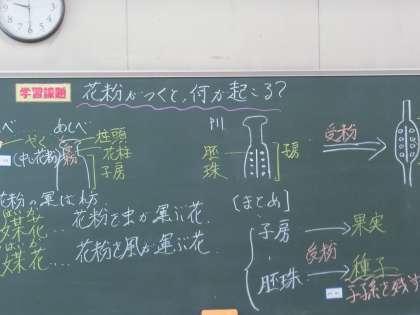 学習課題
花粉がつくと、何が起こる?
めしべ
やく
(中に花粉)
柱頭
花柱
子房
胚珠
子房
受粉
花粉の運ばれ方
媒花… 花粉を虫が運ぶ花
媒花… 花粉を風が運ぶ花
[まとめ]
子房 → 果実
受粉
胚珠 → 種子
子孫を残す